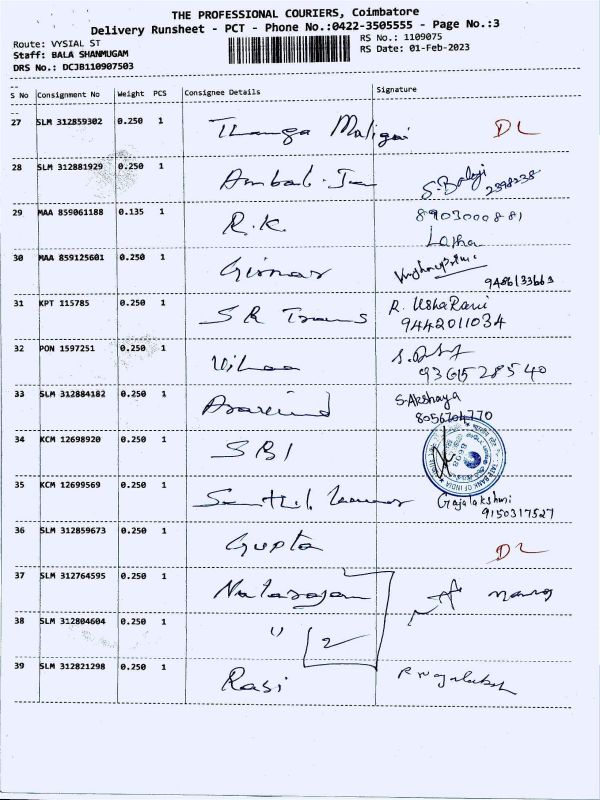 THE PROFESSIONAL COURIERS, Coimbatore
Delivery Runsheet - PCT - Phone No.:0422-3505555 - Page No.:3
Route: VYSIAL ST RS No.: 1109075
Staff: BALA SHANMUGAM RS Date: 01-Feb-2023
DRS No.: DCJB110907503
S No Consignment No Weight PCS Consignee Details Signature
27 SLM 312859302 0.250 1 Thanga Maligai DL
28 SLM 312881929 0.250 1 Ambal S.Balaji
2398238
29 MAA 859061188 0.135 1 R.K. 8903000881
Latha
30 MAA 859125601 0.250 1 Girnar
9486133663
31 KPT 115785 0.250 1 SR Trans R. UshaRani
9442011034
32 PON 1597251 0.250 1
9361528540
33 SLM 312884182 0.250 1 Aravind S.Akshaya
8056704770
34 KCM 12698920 0.250 1 SBI
STATE BANK OF INDIA
35 KCM 12699569 0.250 1 Senthil Kumar Gajalakshmi
9150317527
36 SLM 312859673 0.250 1 Gupta DL
37 SLM 312764595 0.250 1 Natarajan
38 SLM 312804604 0.250 1 " 2
39 SLM 312821298 0.250 1 Rasi